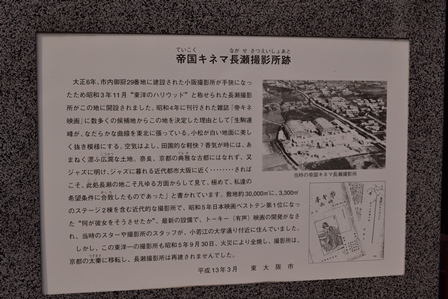 ていこく ながせさつえいしょあと
帝国キネマ長瀬撮影所跡
大正6年、市内御厨29番地に建設された小阪撮影所が手狭になっ
たため昭和3年11月"東洋のハリウッド"と称せられた長瀬撮影
所がこの地に開設されました。昭和4年に刊行された雑誌「帝キネ
映画」に数多くの候補地からこの地を決定した理由として「生駒連
峰が、なだらかな曲線を東北に張っている。小松が白い地面に美し
く抜き模様にする。空気はよし、田園的な軽快?香気が時には、あ
まねく漂ふ広濶な土地。奈良、京都の典雅な古都にはなれず、又
ジャズに明け、ジャズに暮れる近代都市大阪に近く………されば
こそ、此処長瀬の地こそ凡ゆる方面からして見て、極めて、私達の
希望条件に合致したものであった」と書かれています。敷地約30,000㎡に、3,300㎡
のステージ2棟を含む近代的な撮影所で、昭和5年日本映画ベストテン第1位になっ
た"何が彼女をそうさせたか"、最新の設備で、トーキー(有声)映画の開発がなさ
れ、当時のスターや撮影所のスタッフが、小若江の大学通り付近に住んでいました。
しかし、この東洋一の撮影所も昭和5年9月30日、火災により全焼し、撮影所は、
京都の太秦に移転し、長瀬撮影所は再建されませんでした。
うずまさ
平成13年3月 東大阪市
当時の帝国キネマ長瀬撮影所